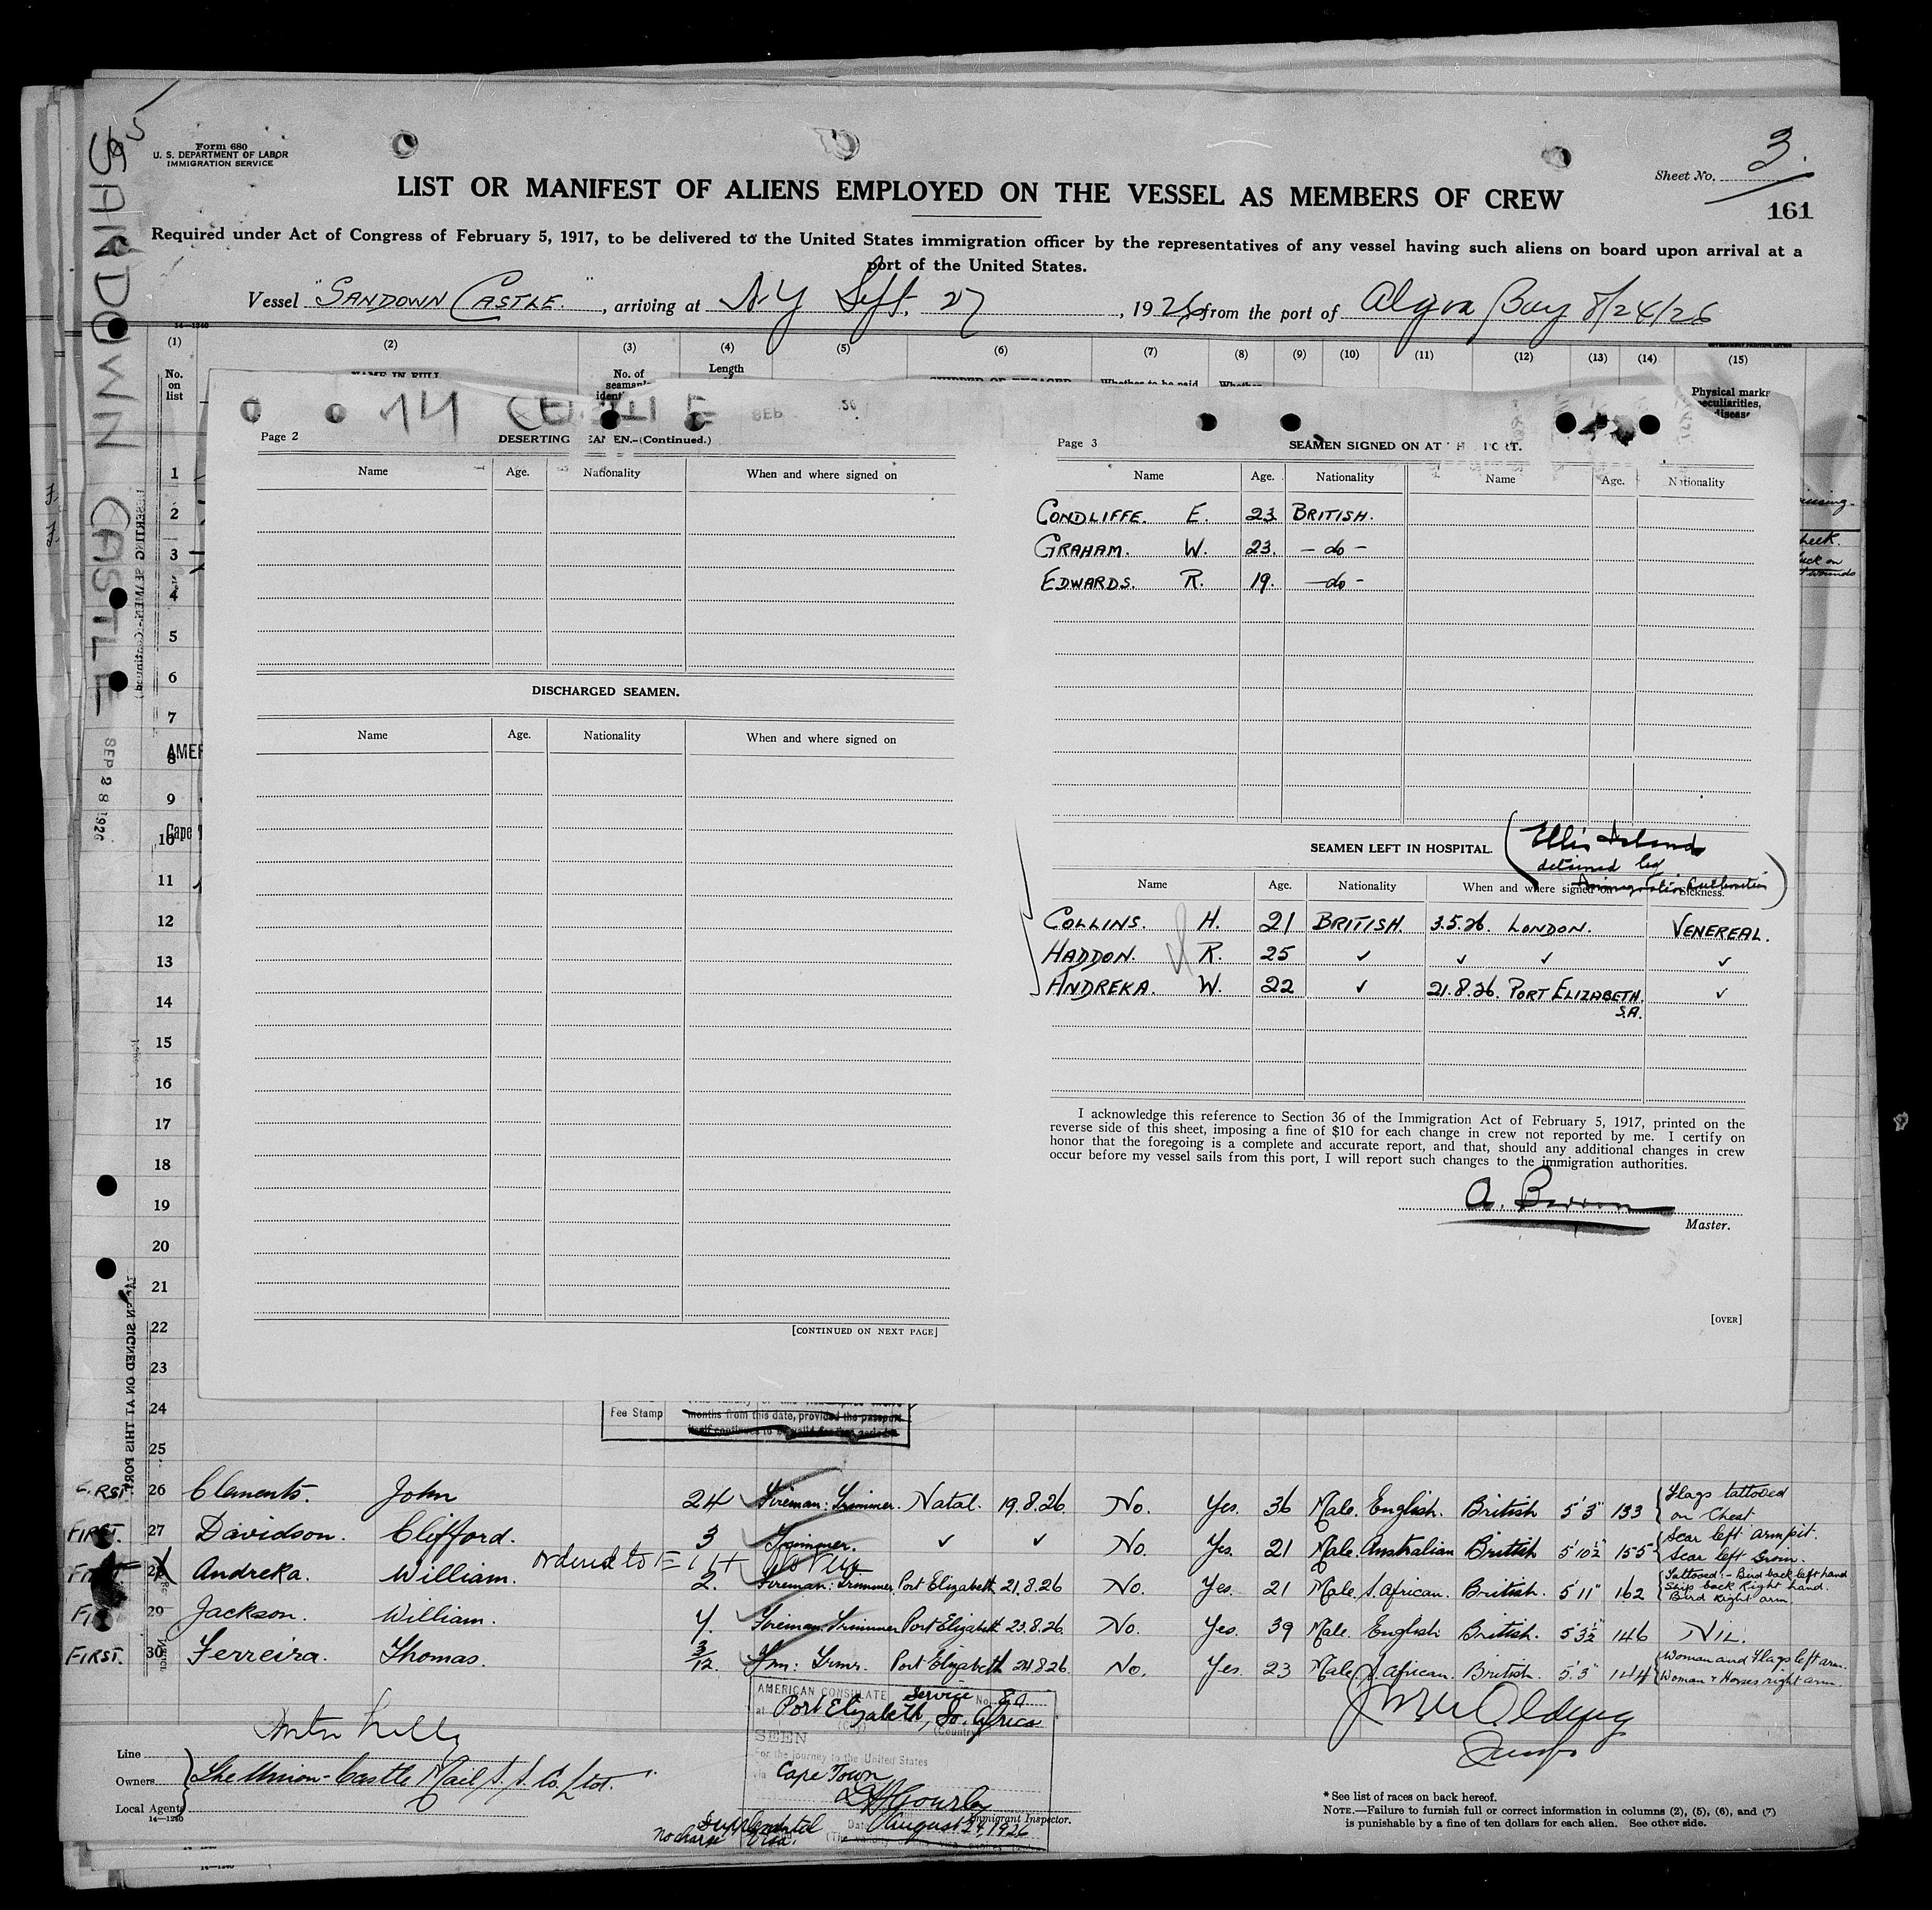 Form 680
U. S. DEPARTMENT OF LABOR
IMMIGRATION SERVICE
SANDOWN CASTLE
SEP 28 1926
Sheet No. 3.
161
LIST OR MANIFEST OF ALIENS EMPLOYED ON THE VESSEL AS MEMBERS OF CREW
Required under Act of Congress of February 5, 1917, to be delivered to the United States immigration officer by the representatives of any vessel having such aliens on board upon arrival at a
port of the United States.
Vessel "SANDOWN CASTLE", arriving at N.Y Sept. 27, 1926 from the port of Algoa Bay 8/24/26
14—1240
(1) (2) (3) (4) (5) (6) (7) (8) (9) (10) (11) (12) (13) (14) (15)
No. on list
NAME IN FULL
No. of seaman's
Length
Physical marks, peculiarities,
Page 2
DESERTING SEAMEN.—(Continued.)
Name Age. Nationality When and where signed on
DISCHARGED SEAMEN.
Name Age. Nationality When and where signed on
[CONTINUED ON NEXT PAGE]
Page 3
SEAMEN SIGNED ON AT THIS PORT.
Name Age. Nationality Name Age. Nationality
CONDLIFFE. E. 23 BRITISH.
GRAHAM. W. 23. - do -
EDWARDS. R. 19. - do -
SEAMEN LEFT IN HOSPITAL. (Ellis Island
detained by
Immigration Authorities)
Name Age. Nationality When and where signed on Sickness.
COLLINS. H. 21 BRITISH. 3.5.26. LONDON. VENEREAL.
HADDON. R. 25 ✓ ✓ ✓ ✓
ANDREKA. W. 22 ✓ 21.8.26. PORT ELIZABETH. ✓
S.A.
I acknowledge this reference to Section 36 of the Immigration Act of February 5, 1917, printed on the
reverse side of this sheet, imposing a fine of $10 for each change in crew not reported by me. I certify on
honor that the foregoing is a complete and accurate report, and that, should any additional changes in crew
occur before my vessel sails from this port, I will report such changes to the immigration authorities.
Master.
[OVER]
1
2
3
4
5
6
7
8
9
10
11
12
13
14
15
16
17
18
19
20
21
22
23
24
25
Fee Stamp
months from this date, provided the passport
FIRST. 26 Clements. John 24 Fireman: Trimmer. Natal. 19.8.26. No. Yes. 36 Male. English. British 5' 3" 133 Flags tattooed
on Chest
FIRST. 27 Davidson. Clifford. 3 Trimmer. ✓ ✓ No. Yes. 21 Male. Australian British 5' 10½ 155 Scar left armpit.
Scar left Groin.
ordered to
28 Andreka. William. 2. Fireman: Trimmer. Port Elizabeth 21.8.26 No. Yes. 21 Male. S. African. British. 5' 11" 162 Tattooed:- Bird back left hand
Ship back Right hand.
Bird Right arm.
29 Jackson. William. 4. Fireman. Trimmer Port Elizabeth 23.8.26. No. Yes. 39 Male. English British. 5' 3½" 146 NIL.
FIRST. 30 Ferreira. Thomas. 3/12. Fmn: Trmr. Port Elizabeth 24.8.26. No. Yes. 23 Male S. African. British. 5' 3" 144 Woman and Flags left arm.
Woman + Horses right arm.
AMERICAN CONSULATE Service No. 80
at Port Elizabeth, So. Africa
(Country)
SEEN
For the journey to the United States
via Cape Town
Immigrant Inspector.
Date August 24, 1926
Supplemental
No charge Visa.
Line
Owners The Union-Castle Mail S. S. Co. Ltd.
Local Agents
14—1240
* See list of races on back hereof.
NOTE.—Failure to furnish full or correct information in columns (2), (5), (6), and (7)
is punishable by a fine of ten dollars for each alien. See other side.